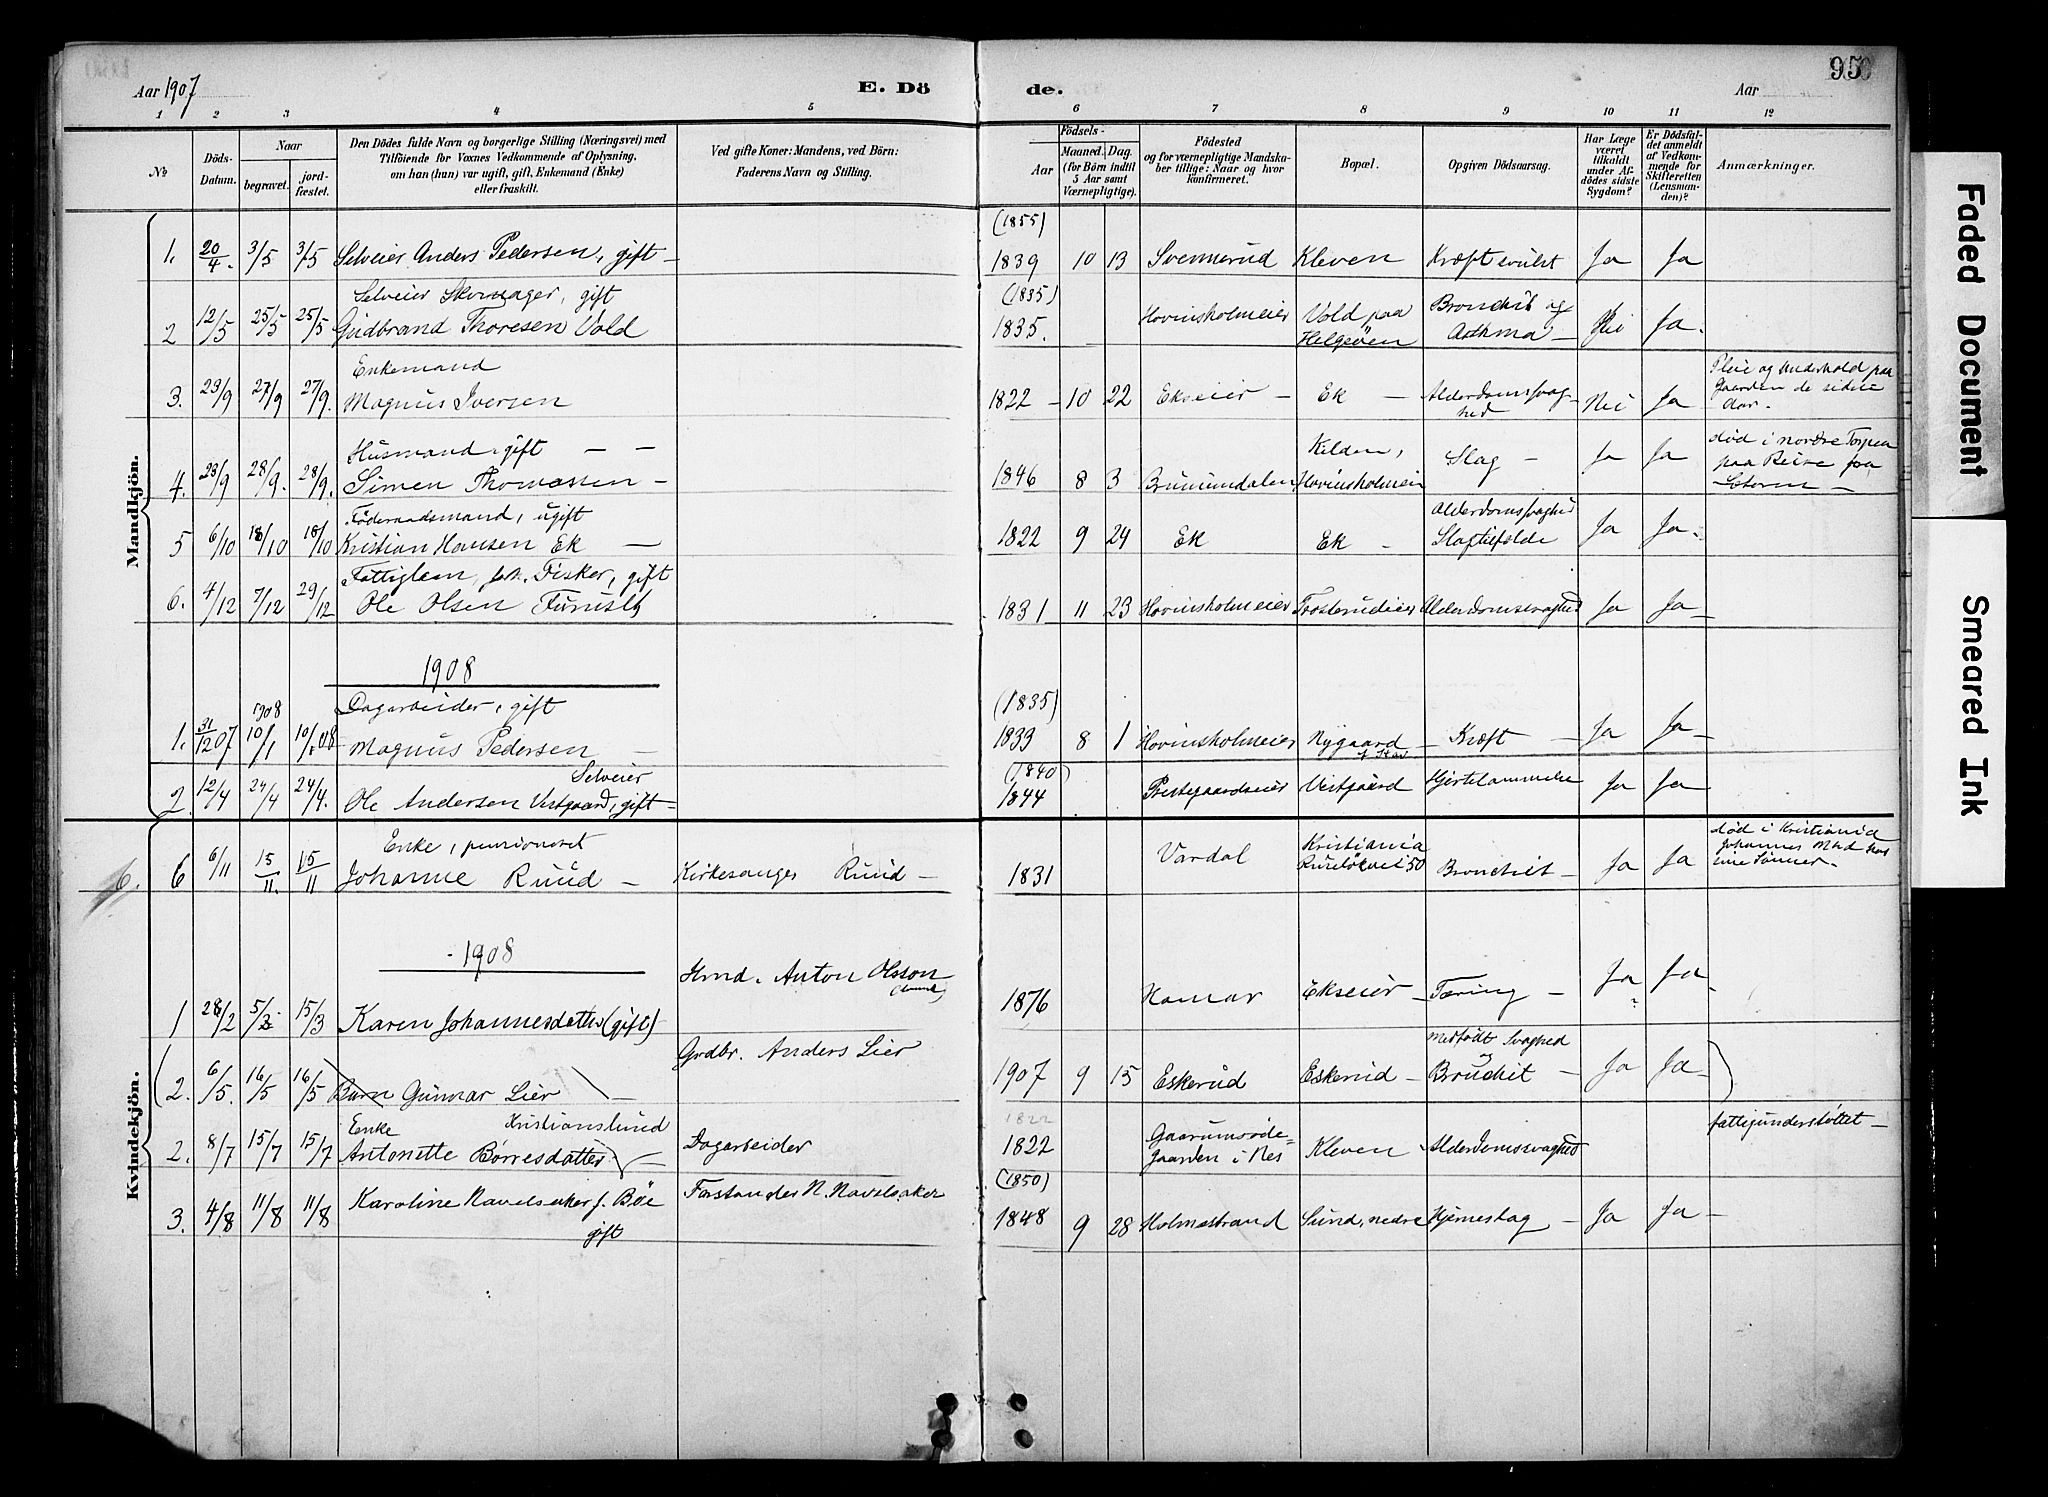 Aar 1907
E. Dö
de.
Aar
95
1 2 3 4 5 6 7 8 9 10 11 12
No
Döds-Datum.
Naar
begravet.
jord-fæstet.
Den Dödes fulde Navn og borgerlige Stilling (Næringsvei) med
Tilföiende for Voxnes Vedkommende af Oplysning,
om han (hun) var ugift, gift, Enkemand (Enke)
eller fraskilt.
Ved gifte Koner: Mandens, ved Börn:
Faderens Navn og Stilling.
Födsels-
Aar
Maaned. Dag.
(for Börn indtil
5 Aar samt
Værnepligtige).
Födested
og for værnepligtige Mandska-
ber tillige: Naar og hvor
konfirmeret.
Bopæl.
Opgiven Dödsaarsag.
Har Læge
været
tilkaldt
under Af-
dödes sidste
Sygdom?
Er Dödsfal-
det anmeldt
af Vedkom-
mende for
Skifteretten
(Lensman-
den)?
Anmærkninger.
Mandkjön.
(1855)
1. 20/4. 3/5 3/5 Selveier Anders Pedersen, gift - 1839 10 13 Svennerud Kleven Kræftsvulst Ja Ja
Selveier Skomager, gift (1835) Bronchit og
2 12/5 25/5 25/5 Gudbrand Thoresen Vold 1835. Hovinsholmeier Vold paa Helgøen Asthma - Nei Ja.
Enkemand Pleie og Underhold paa
3. 23/9 27/9 27/9. Magnus Iversen 1822 - 10 22 Ekseier - Ek - Alderdomssvag-hed Nei Ja Gaarden de sidste Aar.
Husmand, gift - - Kilden, død i nordre
4. 23/9 28/9. 28/9. Simen Thomassen - 1846 8 3 Brumundalen Hovinsholmeier Slag - Ja Ja paa Reise fra
Føderaadsmand, ugift Alderdomssvaghed
5 6/10 18/10 18/10 Kristian Hansen Ek - 1822 9 24 Ek Ek - Slagtilfælde Ja Ja
Fattiglem, fh. Fisker, gift
6. 4/12 7/12 29/12 Ole Olsen Furusly 1831 11 23 Hovinsholmeier Frosterudeier Alderdomssvaghed Ja Ja -
1908
1908 Dagarbeider, gift (1835)
1. 31/12 07 10/1 10/1 08 Magnus Pedersen - 1839 8 1 Hovinsholmeier Nygaard - Kræft - Ja Ja -
Selveier (1840)
2. 12/4 24/4 24/4. Ole Andersen Vestgaard, gift - 1844 Prestegaardseier Vestgaard Hjertelammelse Ja Ja
Kvindekjön.
Enke, pensioneret Kristiania død i Kristiania
6. 6 6/11 15/11. 15/11 Johanne Ruud - Kirkesanger Ruud - 1831 Vardal 50 Bronchit - Ja Ja Johannes Ruud hos sine Sønner.
- 1908
Hmd. Anton Olsson
1 28/2 5/3 15/3 Karen Johannesdatter (gift) 1876 Hamar Ekseier - Tæring - Ja Ja -
Grdbr. Anders Lier Medfødt Svaghed
(2. 6/5. 16/5 16/5 Barn Gunnar Lier - 1907 9 15 Eskerud Eskerud - og Bronchit - Ja Ja -
Enke Kristianslund 1822 fattigunderstøttet -
2. 8/7 15/7 15/7 Antonette Børresdatter - Dagarbeider 1822 Gaarden i Nes Kleven - Alderdomssvaghed
(1850)
3. 4/8 11/8 11/8 Karoline Navelsaker f. Bøe Forstander N. Navelsaker 1848 9 28 Holmestrand Sund, nedre Hjerneslag - Ja Ja -
gift
Faded Document
Smeared Ink